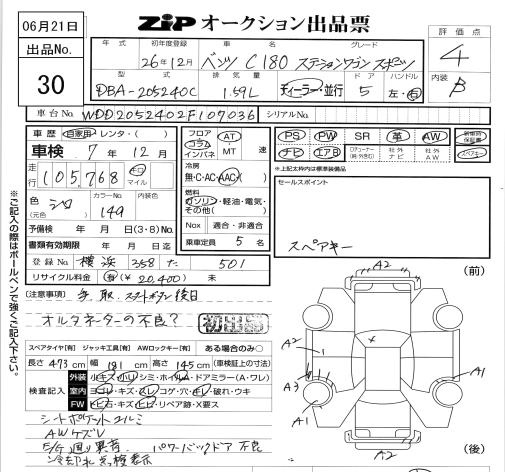 06月21日
出品No.
30
ZIPオークション出品票
評価点
4
内装
B
年式 初年度登録 車名 グレード
26年12月 ベンツ C180 ステーションワゴン スポーツ
型式 排気量 ドア ハンドル
DBA-205240C 1.59L ディーラー・並行 5 左・右
車台No. WDD2052402F107036 シリアルNo.
車歴 自家用 レンタ・( )
車検 7年 12月
走行 105,768 キロ マイル
色 シロ (元色) カラーNo. 149 内装色
予備検 年 月 日(3・8)No.
書類有効期限 年 月 日迄
登録No. 横浜 358 た 501
リサイクル料金 有(¥20,400) 未
フロア コラム インパネ AT MT 速
冷房 無・C・AC・AAC
燃料 ガソリン・軽油・電気・その他( )
Nox 適合・非適合
乗車定員 5 名
PS PW SR 革 AW 新車時保証書
ナビ エアB 社外ナビ 社外AW スペアキー
※上記太枠内は標準装備品
セールスポイント
スペアキー
(注意事項) 手、取、スタートボタン後日
オルタネーターの不良?
初出品
スペアタイヤ[有] ジャッキ工具[有] AWロックキー[有] ある場合のみ○
長さ 473 cm 幅 181 cm 高さ 145 cm (車検証上の寸法)
検査記入
外装 小キズ・小凹・シミ・ホイール・ドアミラー(A・ワレ)
室内 ヨゴレ・キズ・スレ・コゲ・穴・ハガレ・破れ・ウキ
FW トビ石・キズ・ヒビ・リペア跡・X要ス
シートポケットユルミ
AWケズレ
パワーバックドア不良
冷却水点検表示
※ご記入の際はボールペンで強くご記入下さい。
(前)
A2
A2
A3
A1
A1
A2
(後)